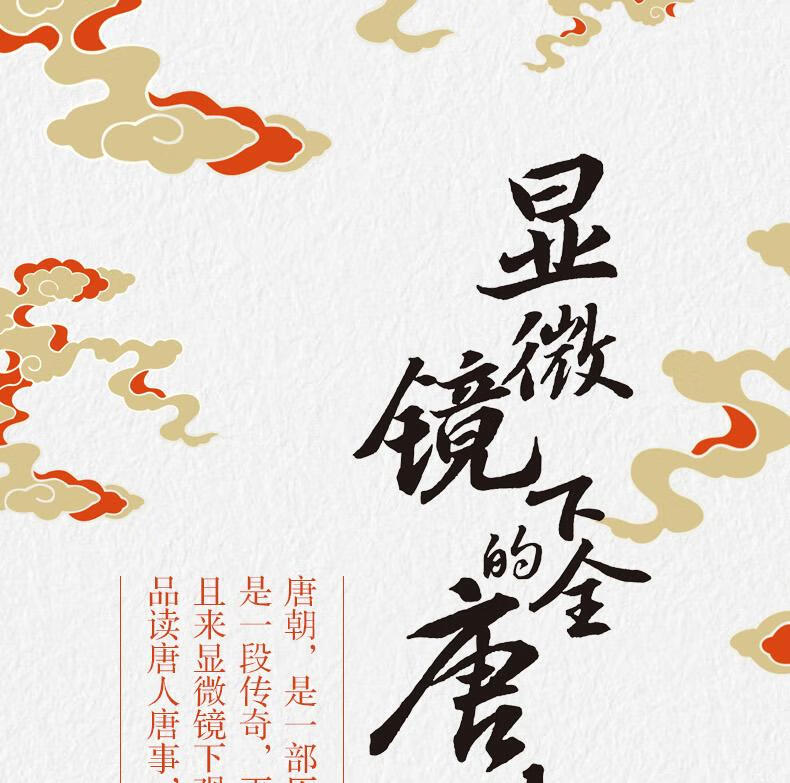 显微镜下的全唐
唐朝，是一部
是一段传奇，
且来显微镜下
品读唐人唐事，